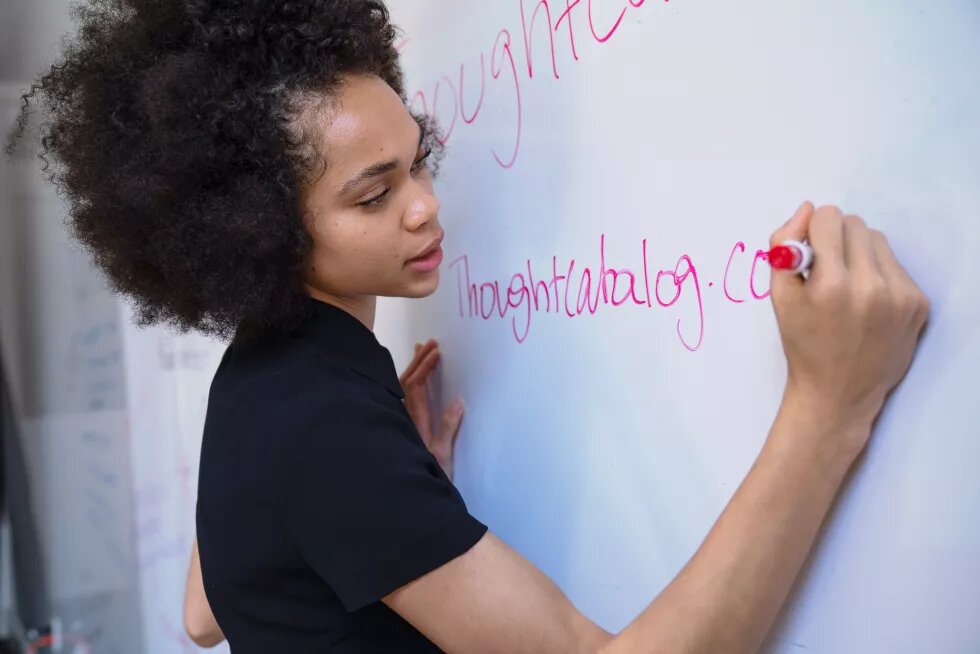 oughtCa
ThoughtCabalog.Co